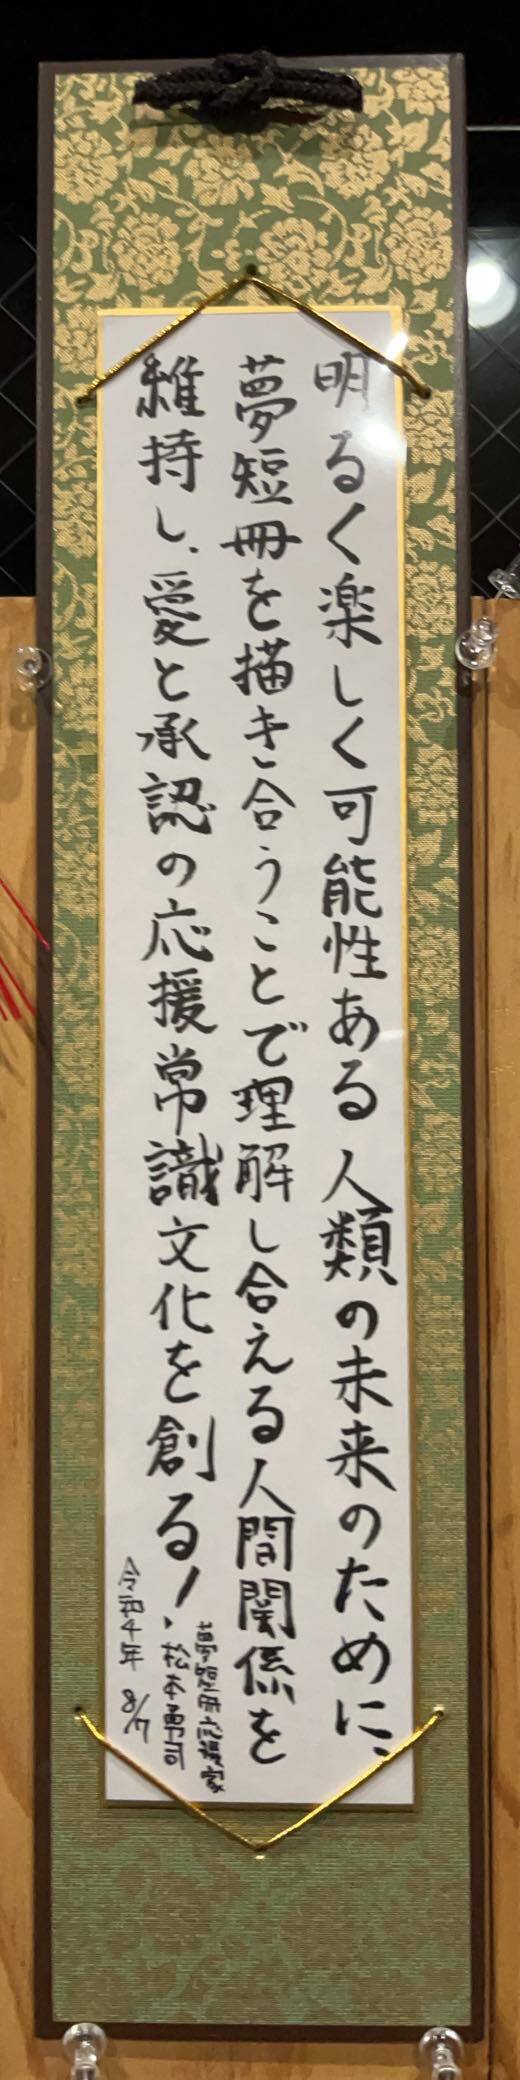 明るく楽しく可能性ある人類の未来のために、
夢短冊を描き合うことで理解し合える人間関係を
維持し、愛と承認の応援常識文化を創る!
夢短冊応援家
松本勇司
令和4年 8/7